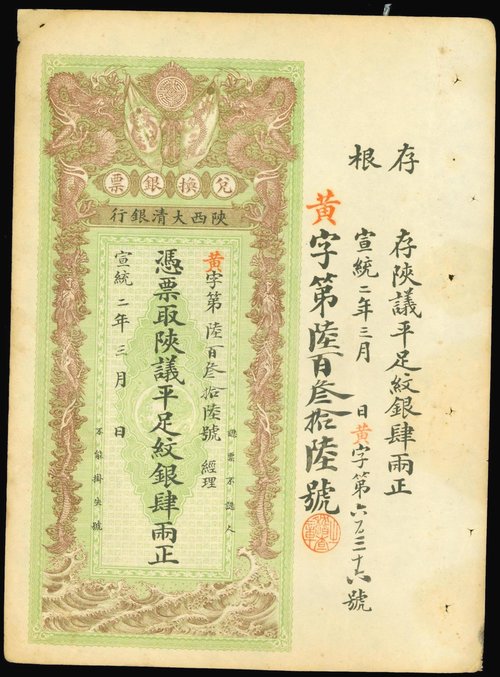 存根
存陝議平足紋銀肆兩正
宣統二年三月 日黃字第六百三十六號
黃字第陸百叁拾陸號
兌換銀票
陝西大清銀行
黃字第陸百叁拾陸號 經理
認票不認人
憑票取陝議平足紋銀肆兩正
宣統二年三月 日
不能掛失號